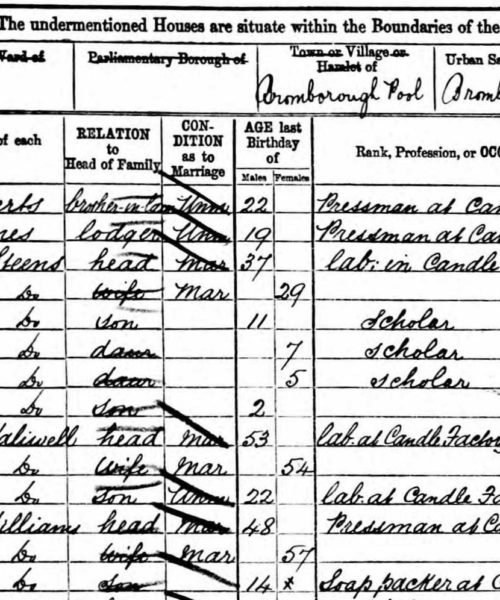 The undermentioned Houses are situate within the Boundaries of the
Ward of Parliamentary Borough of Town or Village or Hamlet of Urban Sa
Bromborough Pool Brom
of each RELATION to Head of Family CONDITION as to Marriage AGE last Birthday of Rank, Profession, or OCC
Males Females
erbs brother-in-law Unm 22 Pressman at Can
nes lodger Unm 19 Pressman at Ca
Steens head Mar 37 lab: in Candle
Do wife Mar 29
Do son 11 Scholar
Do daur 7 scholar
Do daur 5 scholar
Do son 2
aliswell head Mar 53 lab. at Candle Factory
Do Wife Mar 54
Do son Unm 22 lab. at Candle Fa
illiams head Mar 48 Pressman at C
Do wife Mar 57
Do son 14 * Soap packer at C